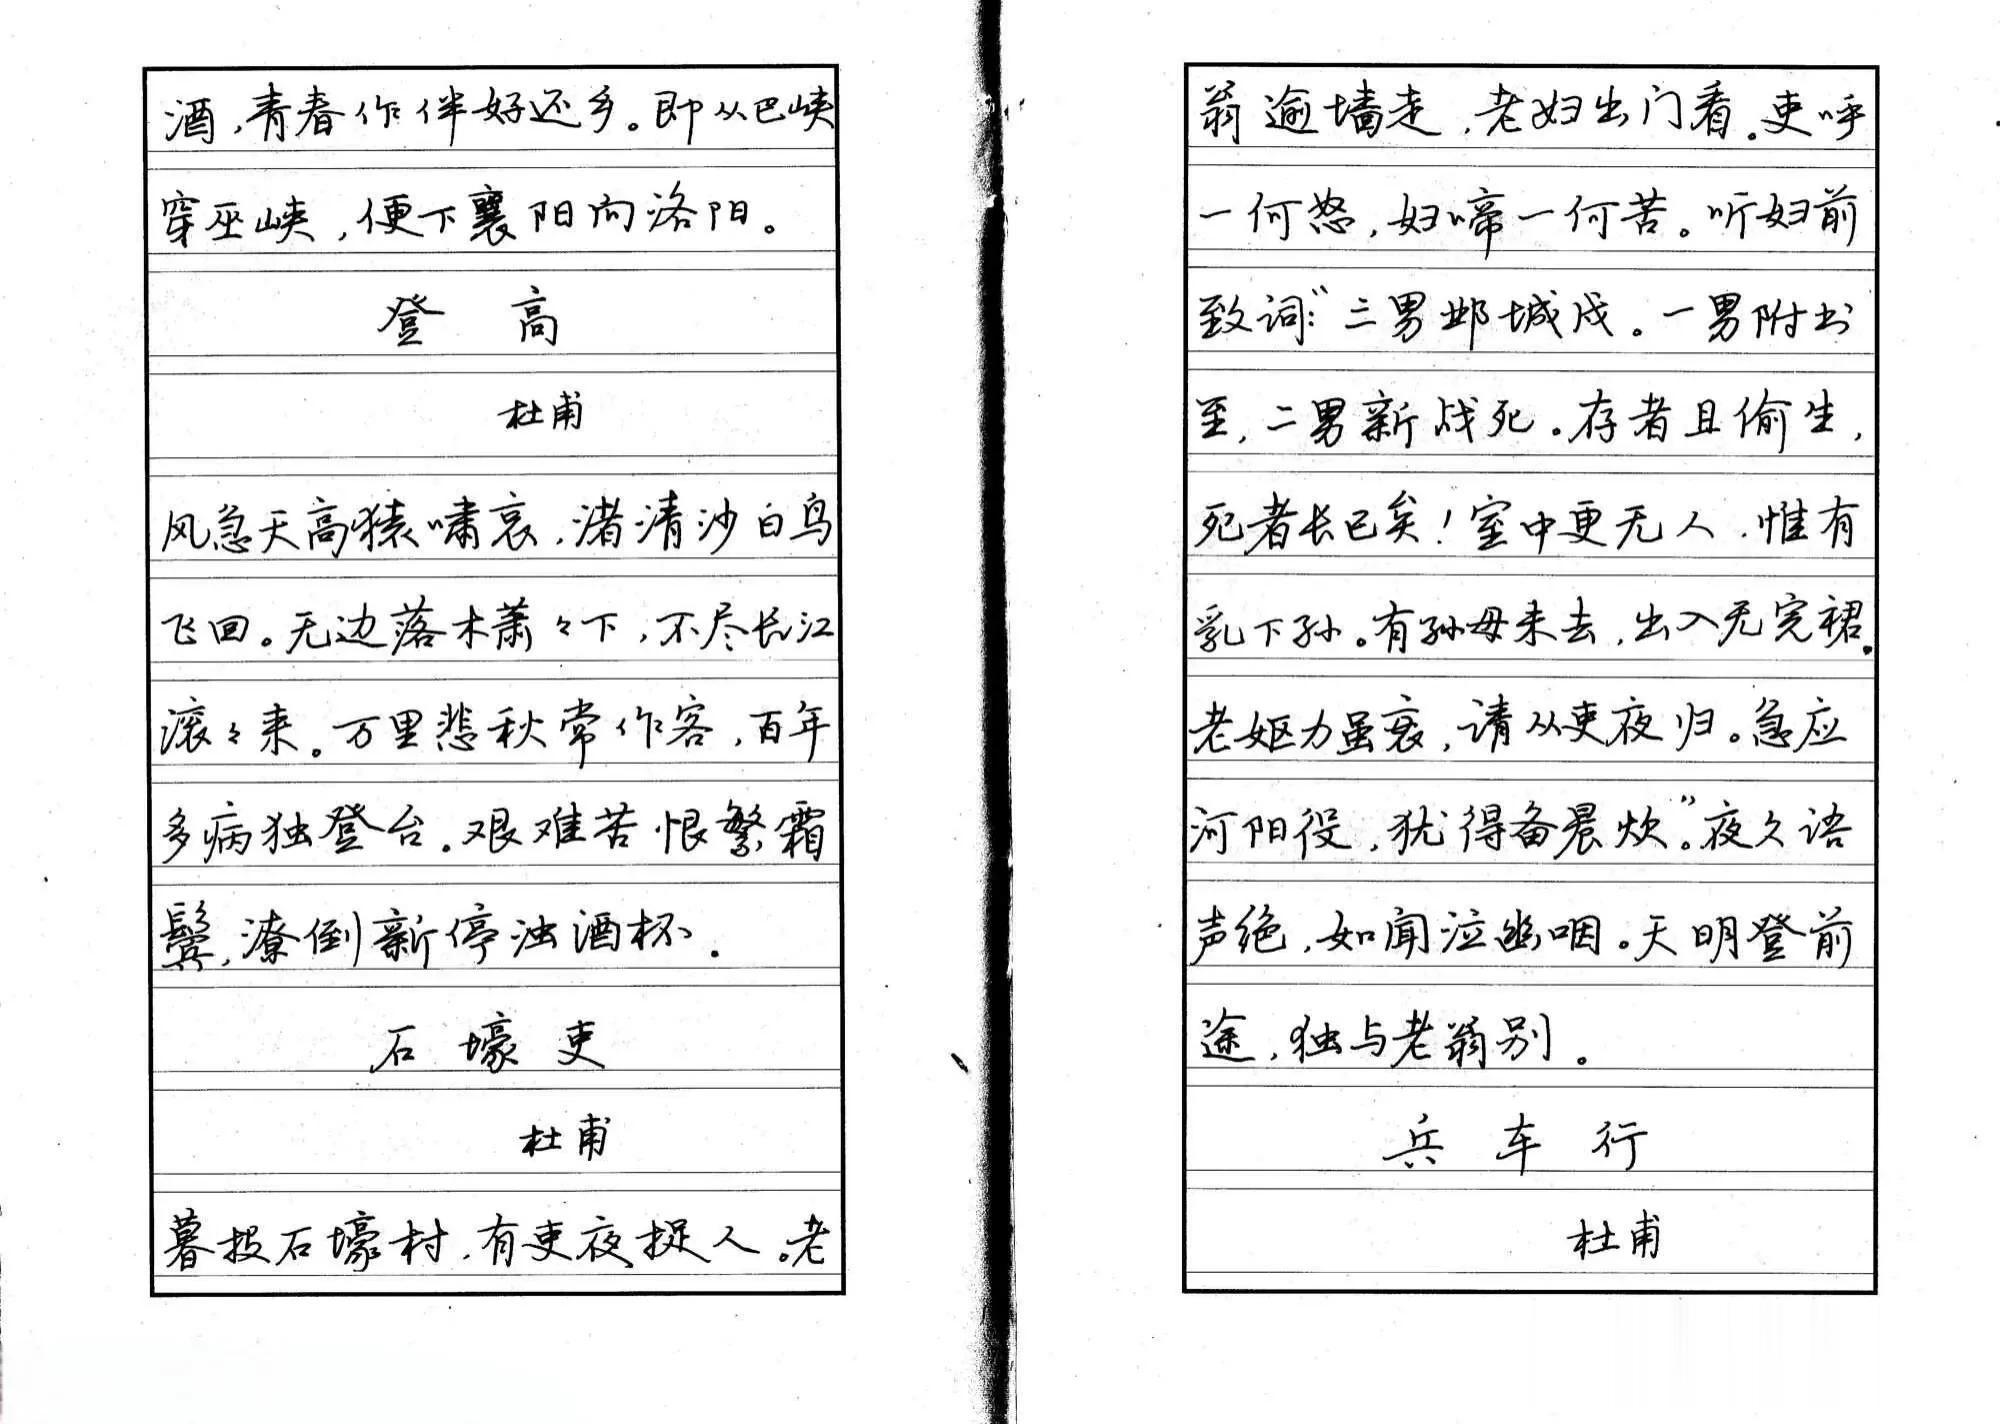 酒，青春作伴好还乡。即从巴峡
穿巫峡，便下襄阳向洛阳。
登高
杜甫
风急天高猿啸哀，渚清沙白鸟
飞回。无边落木萧々下，不尽长江
滚々来。万里悲秋常作客，百年
多病独登台。艰难苦恨繁霜
鬓，潦倒新停浊酒杯。
石壕吏
杜甫
暮投石壕村，有吏夜捉人。老
翁逾墙走，老妇出门看。吏呼
一何怒，妇啼一何苦。听妇前
致词：“三男邺城戍。一男附书
至，二男新战死。存者且偷生，
死者长已矣！室中更无人，惟有
乳下孙。有孙母未去，出入无完裙。
老妪力虽衰，请从吏夜归。急应
河阳役，犹得备晨炊。”夜久语
声绝，如闻泣幽咽。天明登前
途，独与老翁别。
兵车行
杜甫